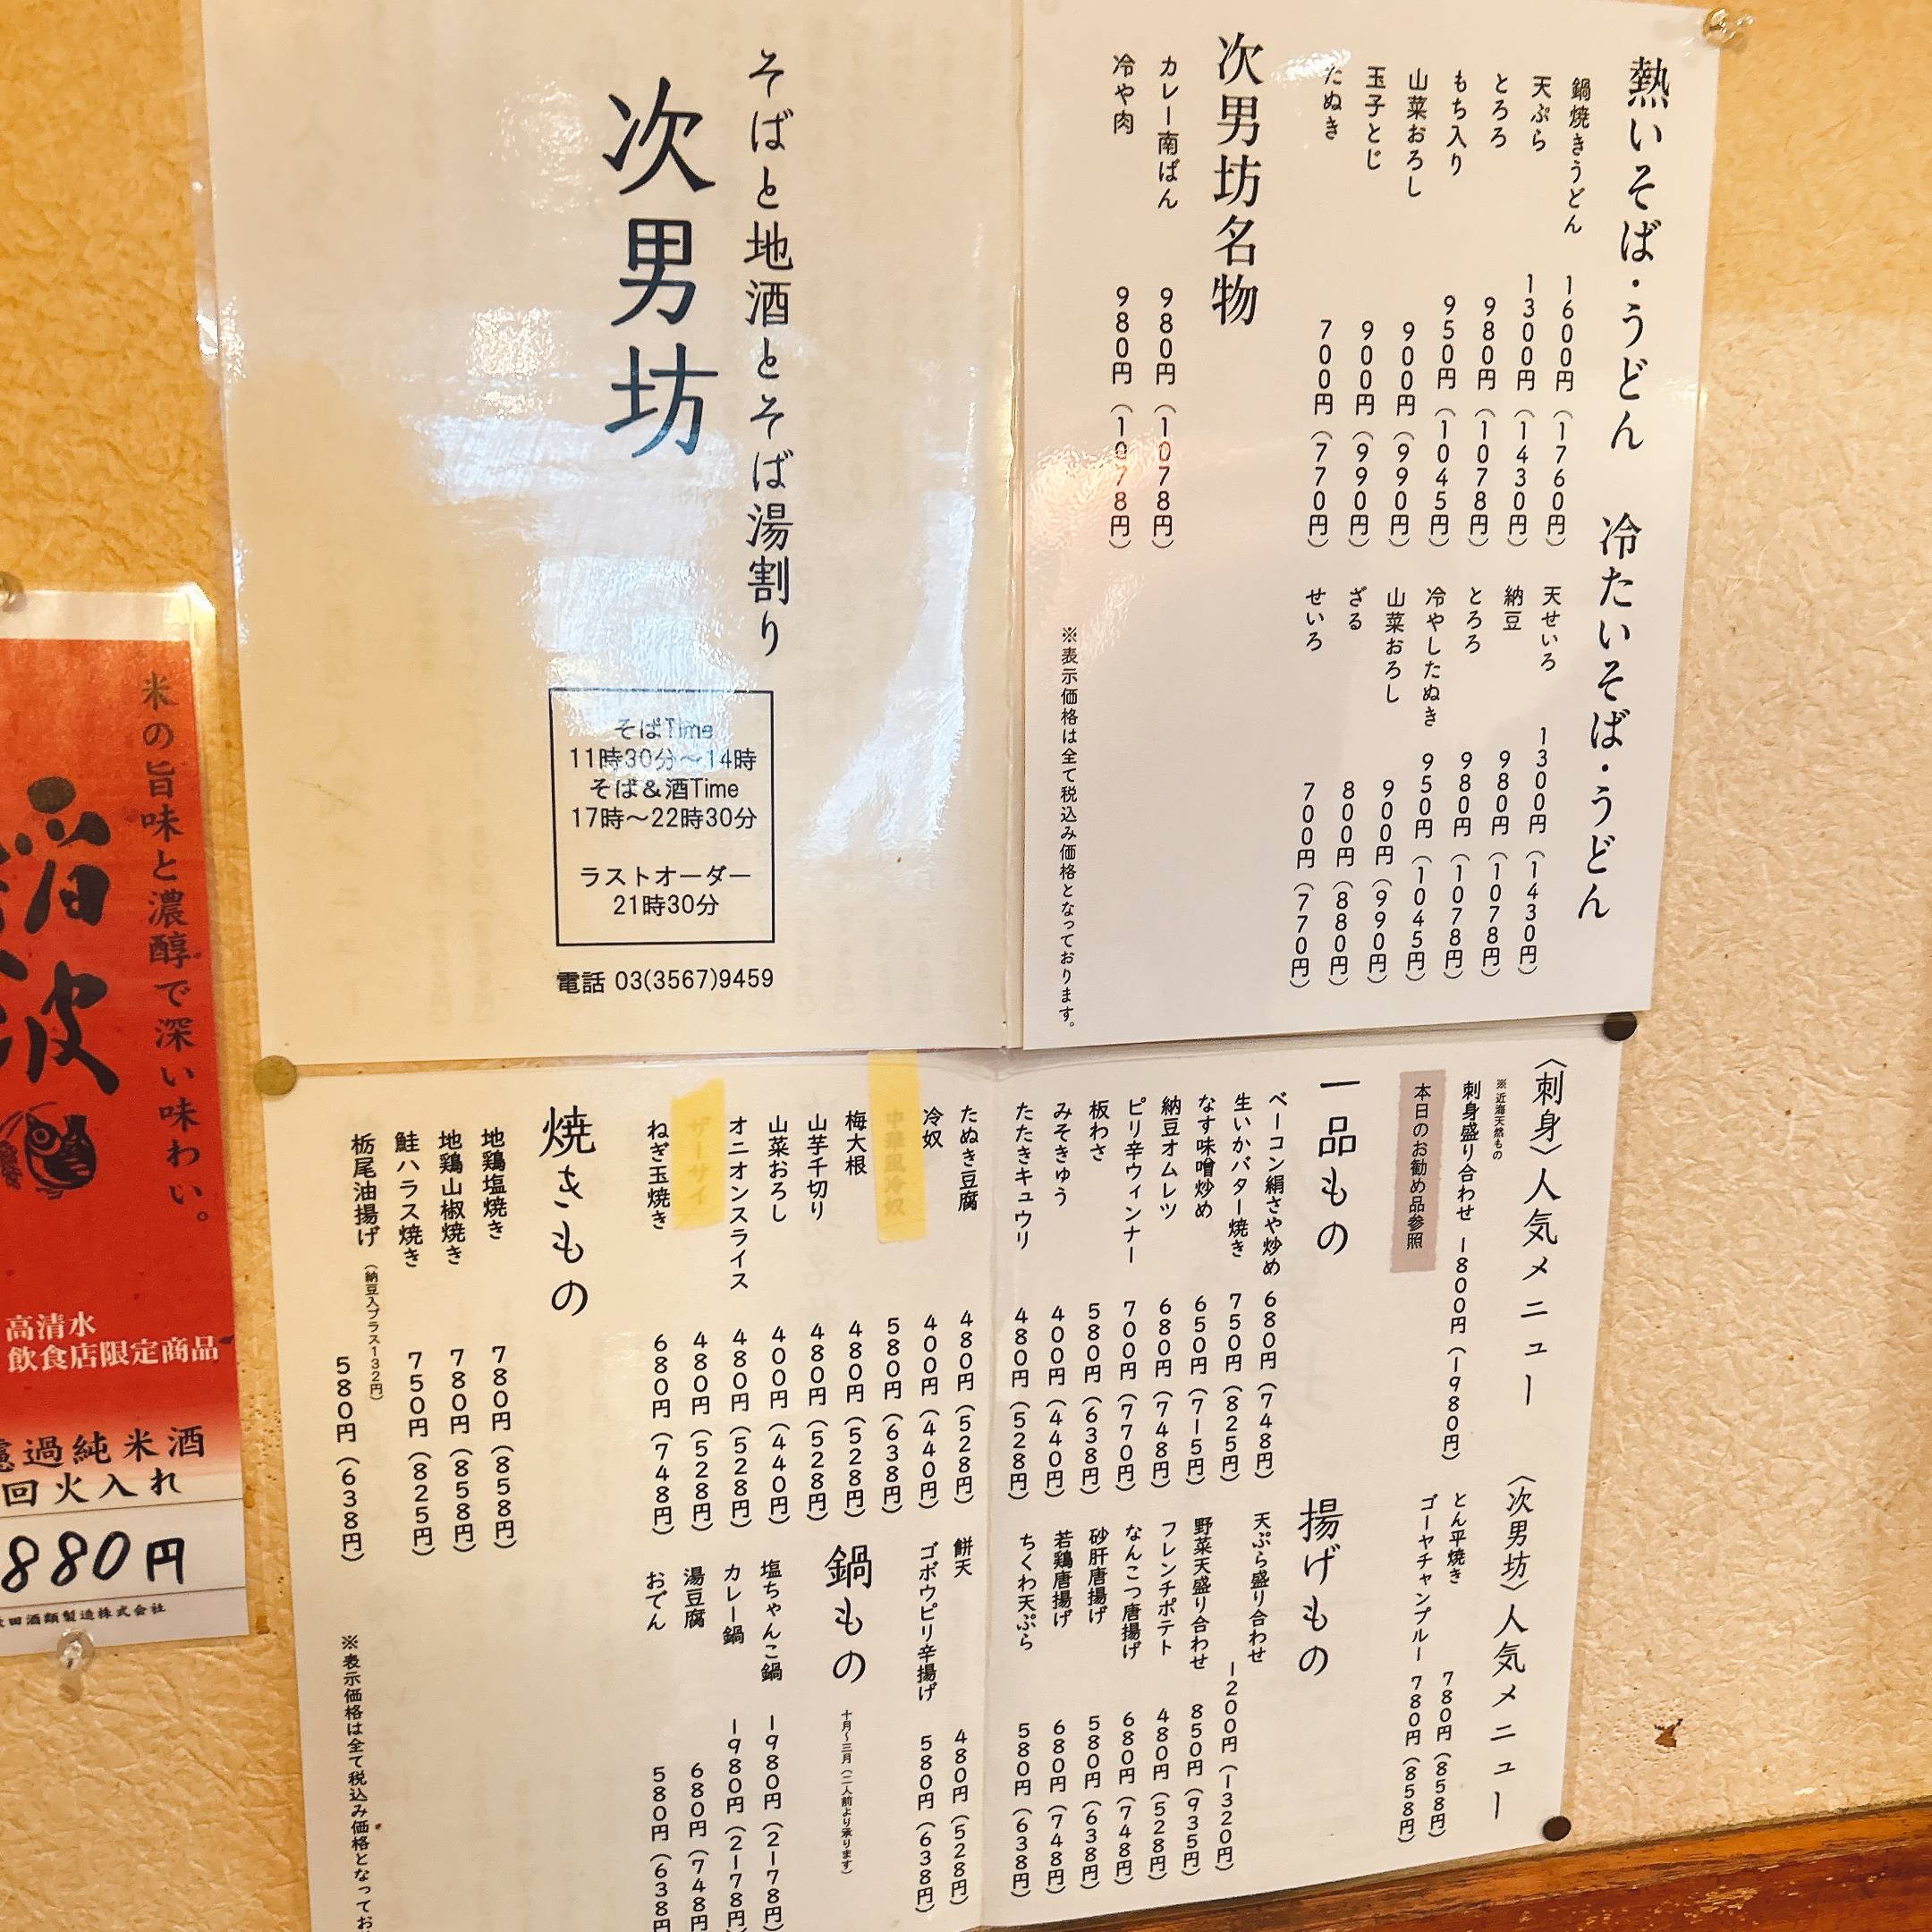 熱いそば・うどん
鍋焼きうどん 1600円（1760円）
天ぷら 1300円（1430円）
とろろ 980円（1078円）
もち入り 950円（1045円）
山菜おろし 900円（990円）
玉子とじ 900円（990円）
たぬき 700円（770円）
次男坊名物
カレー南ばん 980円（1078円）
冷や肉 980円（1078円）
冷たいそば・うどん
天せいろ 1300円（1430円）
納豆 980円（1078円）
とろろ 980円（1078円）
冷やしたぬき 950円（1045円）
山菜おろし 900円（990円）
ざる 800円（880円）
せいろ 700円（770円）
※表示価格は全て税込み価格となっております。
そばと地酒とそば湯割り
次男坊
そばTime
11時30分～14時
そば＆酒Time
17時～22時30分
ラストオーダー
21時30分
電話 03(3567)9459
〈刺身〉人気メニュー
※近海天然もの
刺身盛り合わせ 1800円（1980円）
本日のお勧め品参照
〈次男坊〉人気メニュー
とん平焼き 780円（858円）
ゴーヤチャンプルー 780円（858円）
一品もの
ベーコン絹さや炒め 680円（748円）
生いかバター焼き 750円（825円）
なす味噌炒め 650円（715円）
納豆オムレツ 680円（748円）
ピリ辛ウィンナー 700円（770円）
板わさ 580円（638円）
みそきゅう 400円（440円）
たたきキュウリ 480円（528円）
たぬき豆腐 480円（528円）
冷奴 400円（440円）
中華風冷奴 580円（638円）
梅大根 480円（528円）
山芋千切り 480円（528円）
山菜おろし 400円（440円）
オニオンスライス 480円（528円）
ザーサイ 480円（528円）
ねぎ玉焼き 680円（748円）
揚げもの
天ぷら盛り合わせ 1200円（1320円）
野菜天盛り合わせ 850円（935円）
フレンチポテト 480円（528円）
なんこつ唐揚げ 680円（748円）
砂肝唐揚げ 580円（638円）
若鶏唐揚げ 680円（748円）
ちくわ天ぷら 580円（638円）
餅天 480円（528円）
ゴボウピリ辛揚げ 580円（638円）
鍋もの
十月～三月（二人前より承ります）
塩ちゃんこ鍋 1980円（2178円）
カレー鍋 1980円（2178円）
湯豆腐 680円（748円
おでん 580円（638円
焼きもの
地鶏塩焼き 780円（858円）
地鶏山椒焼き 780円（858円）
鮭ハラス焼き 750円（825円）
栃尾油揚げ 580円（638円）
（納豆入プラス132円）
※表示価格は全て税込み価格となってお
米の旨味と濃醇で深い味わい。
稲
波
高清水
飲食店限定商品
過純米酒
回火入れ
880円
田酒類製造株式会社